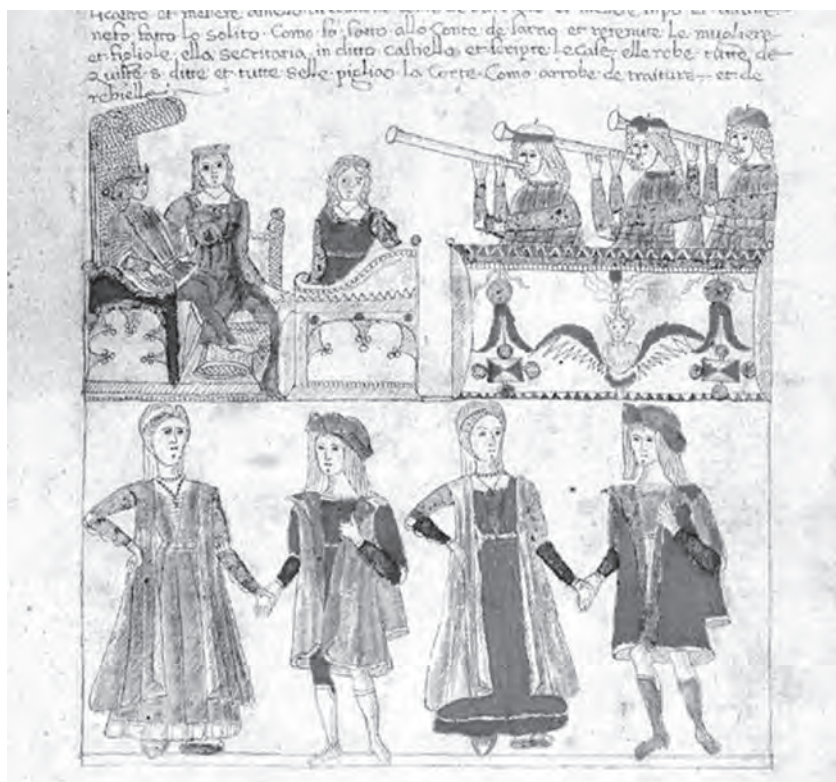 neto fatto lo solito. Como fo' fatto allo Conte de Sarno et retenute le mugliere
et figliole, ella Secretaria, in ditto castiello, et scripte le case, elle robe tutte de
quiste s. ditte et tutte selle pigliao la Corte. Como arrobe de traiture, et de
rebielle